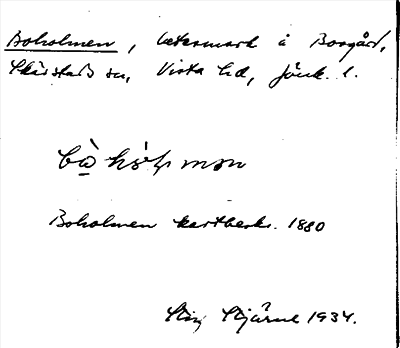 Boholmen, utmark å Borgård,
Skärstads sn, Vista hd, Jönk. l.
Boholmen kartbeskr. 1880
Stig Stjärne 1934.